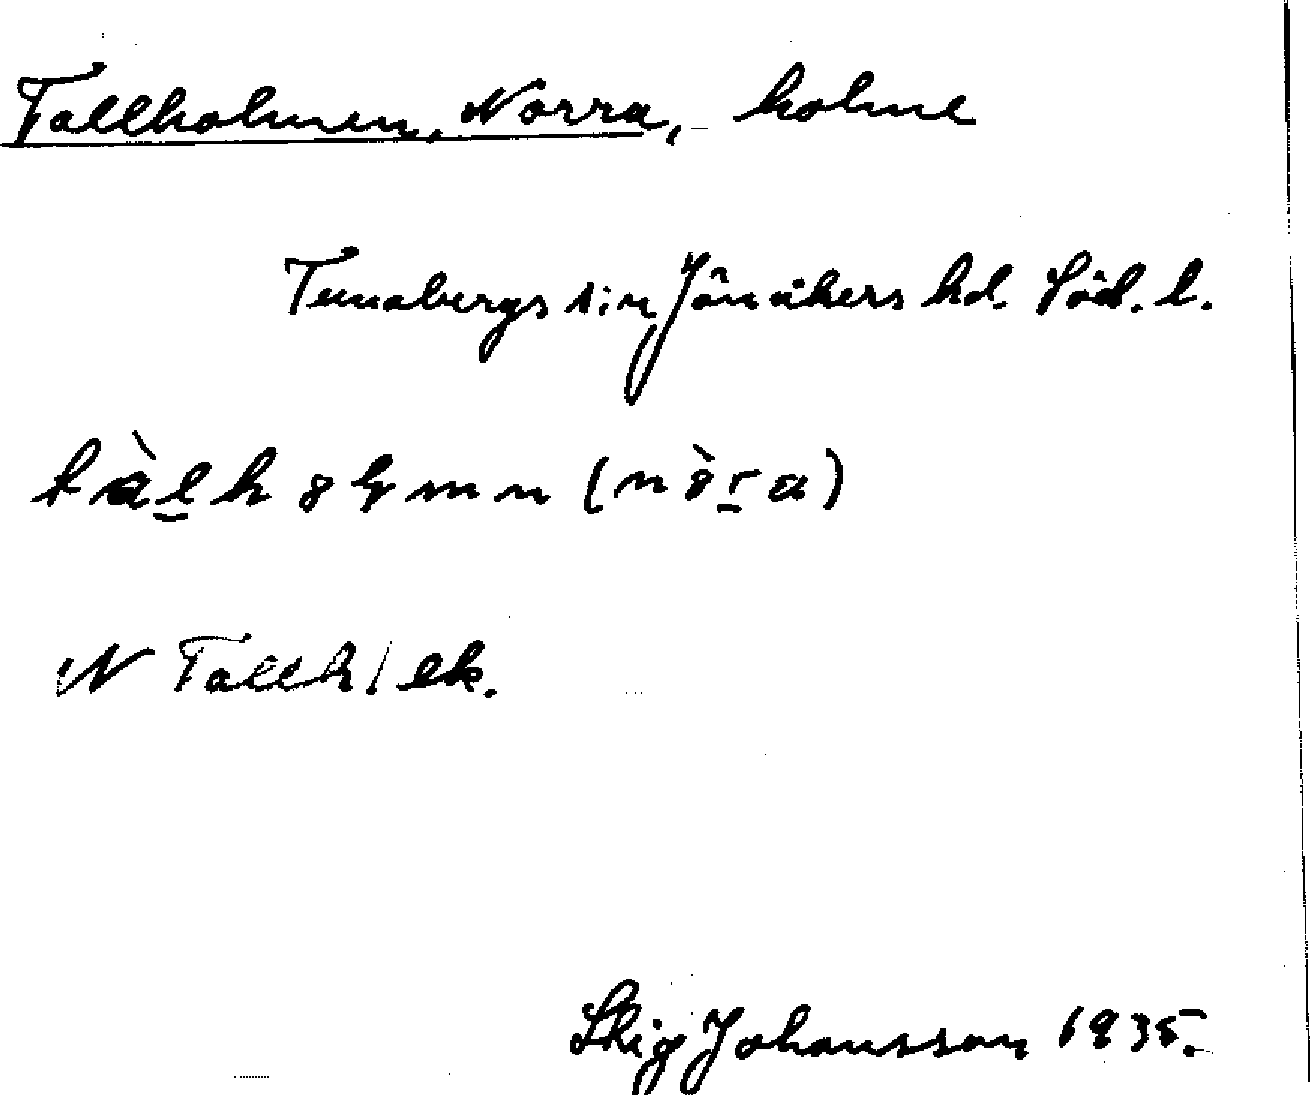 Tallholmen, Norra, holme
Tunabergs sn Jönåkers hd. Söd. l.
tàl̲hȣɫmn (nȣ̀r̲a)
N Tallh/ ek.
Stig Johansson 1935.